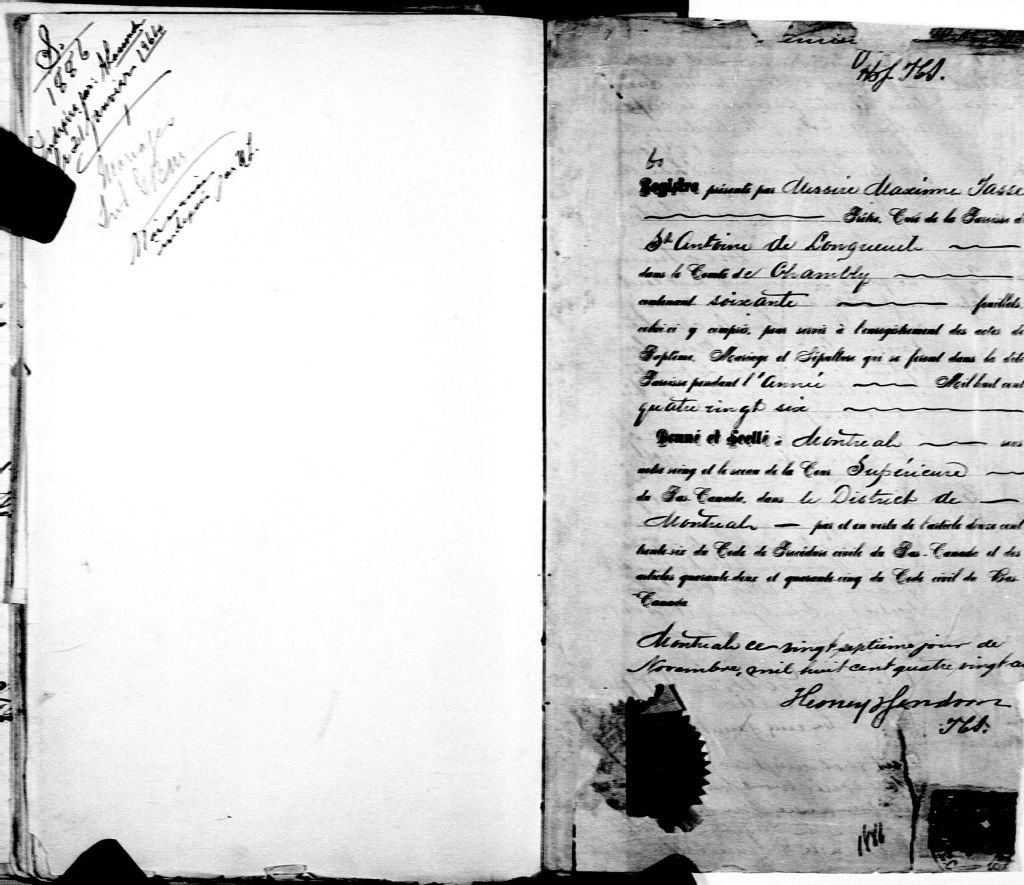 S.
1886
Indexé par
le 24 janvier 1964
Mariages
par
Registre présenté par Messire Maxime Tassé
Prêtre, Curé de la Paroisse d
St Antoine de Longueuil
dans le Comté de Chambly
contenant soixante feuillets,
celui-ci y compris, pour servir à l'enregistrement des actes de
Baptême, Mariage et Sépulture qui se feront dans la dite
Paroisse pendant l'Année Mil huit cent
quatre vingt six
Donné et Scellé à Montreal sous
notre seing et le sceau de la Cour Supérieure
du Bas-Canada, dans le District de
Montreal par et en vertu de l'article douze cent
trente-six du Code de Procédure civile du Bas-Canada et des
articles quarante-deux et quarante-cinq du Code civil du Bas
Canada
Montreal ce vingt septième jour de
Novembre, mil huit cent quatre vingt
1886